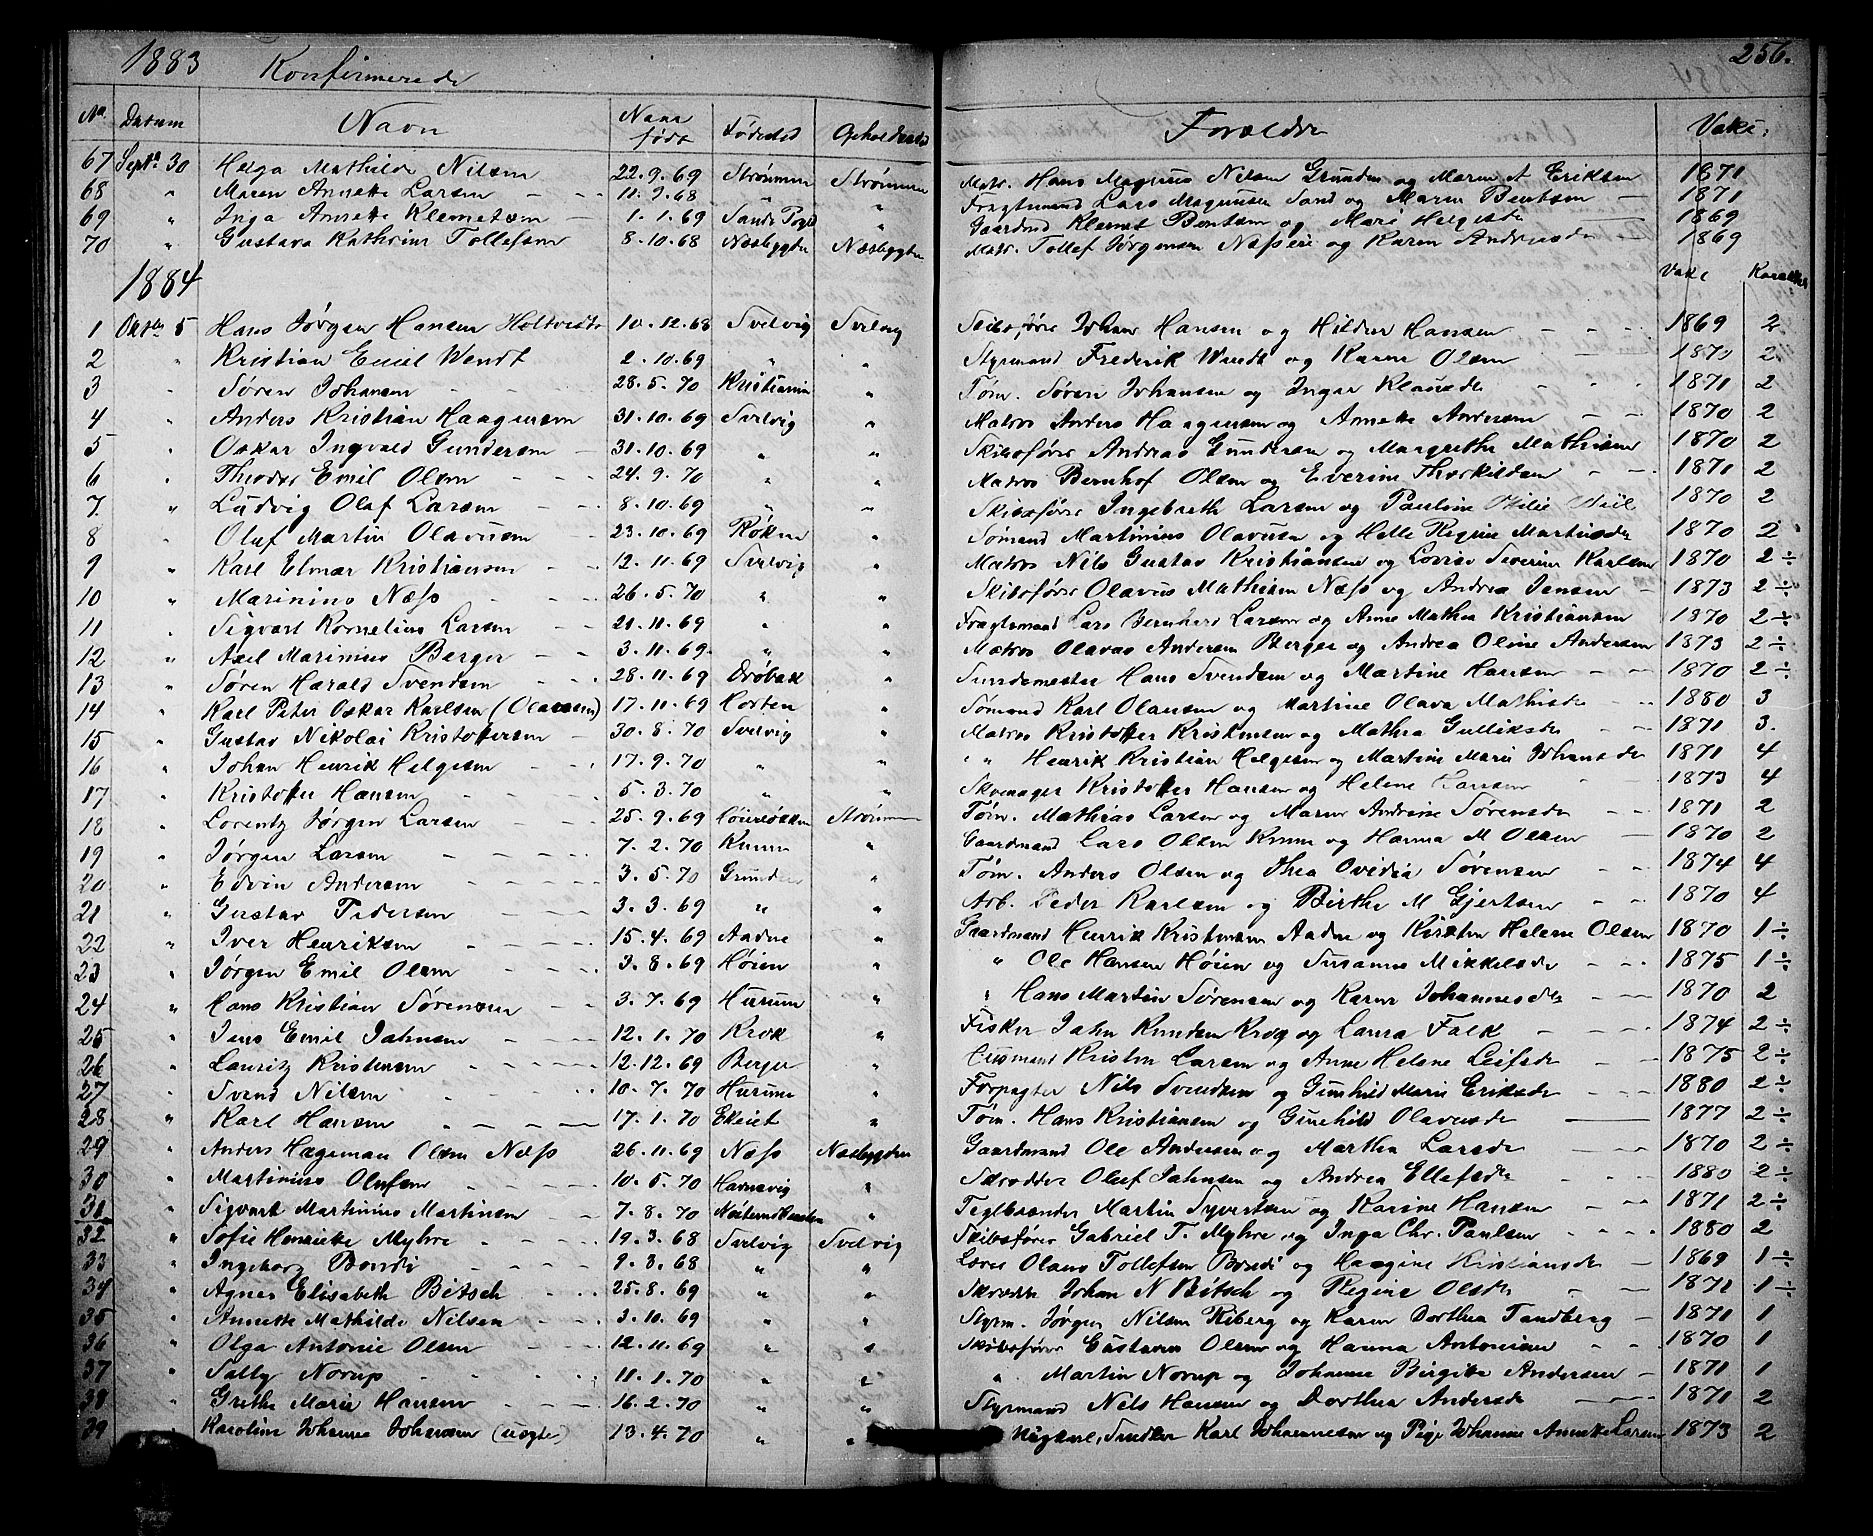 1883 Konfirmerede 256.
No. Datum Navn Naar født Fødested Opholdssted Forældre Vakc.
67 Septr. 30 Helga Mathilde Nilsen 22.9.69 Strømmen Strømmen Matr. Hans Magnus Nilsen Grunden og Maren A Eriksen 1871
68 " Maren Annette Larsen 11.9.68 " " Fragtemand Lars Magnusen Sand og Maren Bentsen 1871
69 " Inga Annette Klemetsen 1.1.69 Sande Pgd " Gaardmd Klemet Bentsen og Mari Helgesdr 1869
70 " Gustava Kathrine Tollefsen 8.10.68 Nesbygden Nesbygden Matr. Tollef Jørgensen Nesseie og Karen Andreasdr 1869
1884 Vakc Karakter
1 Oktbr 5 Hans Jørgen Hansen Holtvedt 10.12.68 Svelvig Svelvig Skibsfører Johan Hansen og Hildur Hansen 1869 2
2 " Kristian Emil Wendt 2.10.69 " " Styrmand Frederik Wendt og Karen Olsen 1870 2
3 " Søren Johansen 28.5.70 Kristiania " Tøm. Søren Johansen og Inger Klausdr 1871 2
4 " Anders Kristian Haagensen 31.10.69 Svelvig " Matros Anders Haagensen og Annette Andersen 1870 2
5 " Oskar Ingvald Gundersen 31.10.69 " " Skibsfører Andreas Gundersen og Margrethe Mathisen 1870 2
6 " Theodor Emil Olsen 24.9.70 " " Matros Bernhof Olsen og Everine Thorkildsen 1871 2
7. " Ludvig Olaf Larsen 8.10.69 " " Skibsfører Ingebreth Larsen og Pauline 1870 2
8 " Oluf Martin Olavusen 23.10.69 Røken " Sømand Martinius Olavusen og Helle Regine Martinsdr 1870 2
9 " Karl Elmar Kristiansen 12.11.69 Svelvig " Matros Nils Gustav Kristiansen og Lovise Severine Karlsen 1870 2÷
10 " Marinius Næss 26.5.70 " " Skibsfører Olavus Mathisen Næss og Andrea Jensen 1873 2÷
11 " Sigvart Kornelius Larsen 21.11.69 " " Fragtemand Lars Bernhard Larsen og Anne Mathea Kristiansen 1870 2÷
12 " Axel Marinius Berger 3.11.69 " " Matros Olavus Andersen Berger og Andrea Oline Andersen 1873 2÷
13 " Søren Harald Svendsen 28.11.69 Drøbak " Sundemester Hans Svendsen og Martine Hansen 1870 2÷
14 " Karl Peter Oskar Karlsen (Olausen) 17.11.69 Horten " Sømand Karl Olausen og Martine Olava Mathisdr 1880 3
15 " Gustav Nikolai Kristoffersen 30.8.70 Svelvig " Matros Kristoffer Kristensen og Mathea Gulliksdr 1871 3.
16 " Johan Henrik Helgesen 17.9.70 " " " " Henrik Kristian Helgesen og Martine Marie Johansdr 1871 4
17 " Kristoffer Hansen 5.3.70 " " Skomager Kristoffer Hansen og Helene Larsen 1873 4
18 " Lorentz Jørgen Larsen 25.9.69 Strømmen Tøm. Mathias Larsen og Maren Andrine Sørensdr 1871 2
19 " Jørgen Larsen 7.2.70 Knem " Gaardmand Lars Olsen Knem og Hanna M Olsen 1870 2
20 " Edvin Andersen 3.5.70 Grunden " Tøm. Anders Olsen og Thea Ovidia Sørensen 1874 4
21 " Gustav Pedersen 3.3.69 " " Arb. Peder Karlsen og Birthe M Gjertsen 1870 4
22 " Iver Henriksen 15.4.69 Aadne " Gaardmand Henrik Kristensen Aadne og Kirsten Helene Olsen 1870 1÷
23 " Jørgen Emil Olsen 3.8.69 Høien " " Ole Hansen Høien og Susanne Mikkelsdr 1875 1÷
24 " Hans Kristian Sørensen 3.7.69 Hurum " " Hans Martin Sørensen og Karen Johannesdr 1870 2
25 " Jens Emil Jahnsen 12.1.70 Krok " Fisker Jahn Knudsen Krog og Laura Falk 1874 2÷
26 " Lauritz Kristensen 12.12.69 Berger " Husmand Kristen Larsen og Anne Helene Leifsdr 1875 2÷
27 " Svend Nilsen 10.7.70 Hurum " Forpagter Nils Svendsen og Gunhild Marie Eriksdr 1880 2÷
28 " Karl Hansen 17.1.70 Ekeiet " Tøm. Hans Kristiansen og Gunhild Olavusdr 1877 2÷
29 " Anders Hageman Olsen Næss 26.11.69 Næss Nesbygden Gaardmand Ole Andersen og Marthea Larsdr 1870 2÷
30 " Martinius Olufsen 10.5.70 Havnsvig " Skrædder Oluf Jahnsen og Andrea Ellefsdr 1880 2÷
31 " Sigvart Martinius Martinsen 7.8.70 " Teglbrænder Martin Syvertsen og Karine Hansen 1871 2÷
32 " Sofie Henriette Myhre 19.3.68 Svelvig Svelvig Skibsfører Gabriel T. Myhre og Inga Chr. Paulsen 1880 2
33 " Ingeborg Bondi 9.3.68 " " Lærer Olaus Tollefsen Bondi og Haagine Kristiansdr 1869 1÷
34 " Agnes Elisabeth Bitsch 25.8.69 " " Skrædder Johan N Bitsch og Regine Olsdr 1871 1÷
35 " Annette Mathilde Nilsen 3.10.69 " " Styrm. Jørgen Nilsen Kiberg og Karen Dorthea Tandberg 1871 1
36 " Olga Antonie Olsen 12.11.69 " " Skibsfører Gustavus Olsen og Hanna Antonisen 1870 1
37 " Sally Norup 11.1.70 " " " Martin Norup og Johanne Birgitte Andersen 1871 1
38 " Grethe Marie Hansen 16.2.70 " " Styrmand Nils Hansen og Dorthea Andersdr 1871 2
39 " Karoline Johanne Johansen (uægte) 13.4.70 " " Ungkarl, Snedker Karl Johannesen og Pige Johanne Annette Larsen 1873 2